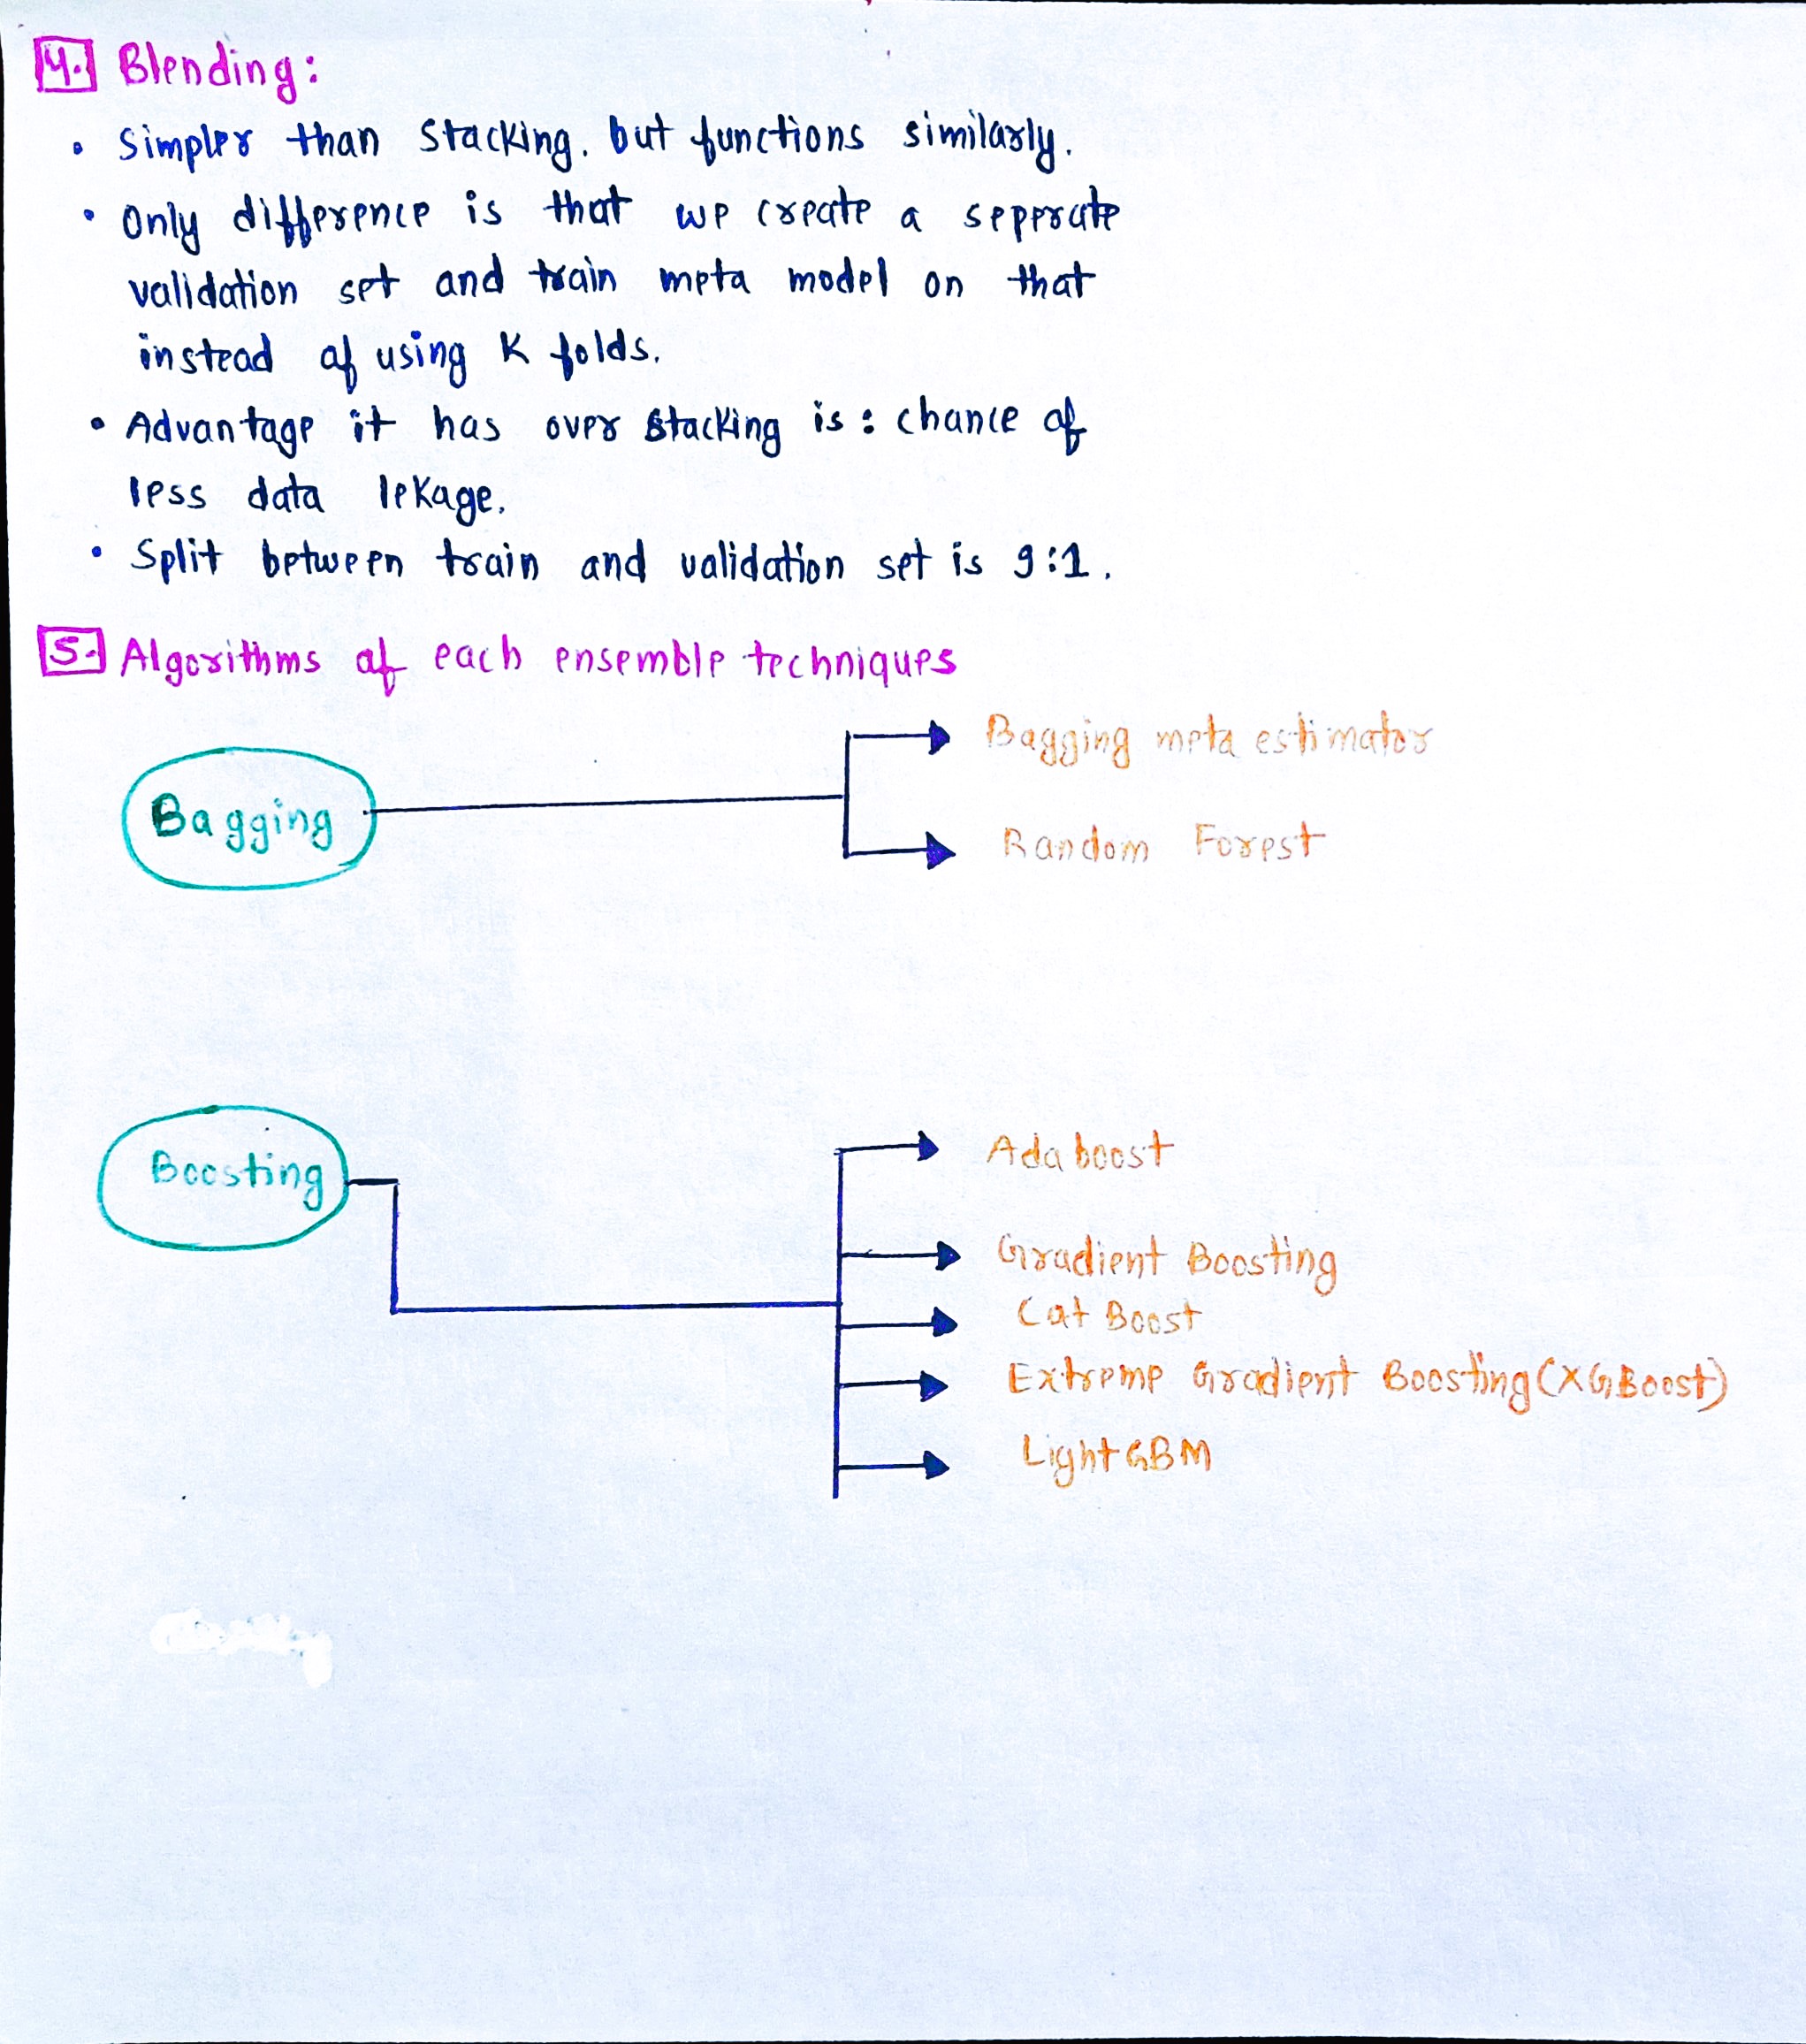 4. Blending:
• Simpler than Stacking. but functions similarly.
• Only difference is that we create a seperate
validation set and train meta model on that
instead of using K folds.
• Advantage it has over stacking is : chance of
less data lekage.
• Split between train and validation set is 9:1.
5. Algorithms of each ensemble techniques
Bagging meta estimator
Bagging
Random Forest
Adaboost
Boosting
Gradient Boosting
Cat Boost
Extreme Gradient Boosting (XGBoost)
Light GBM